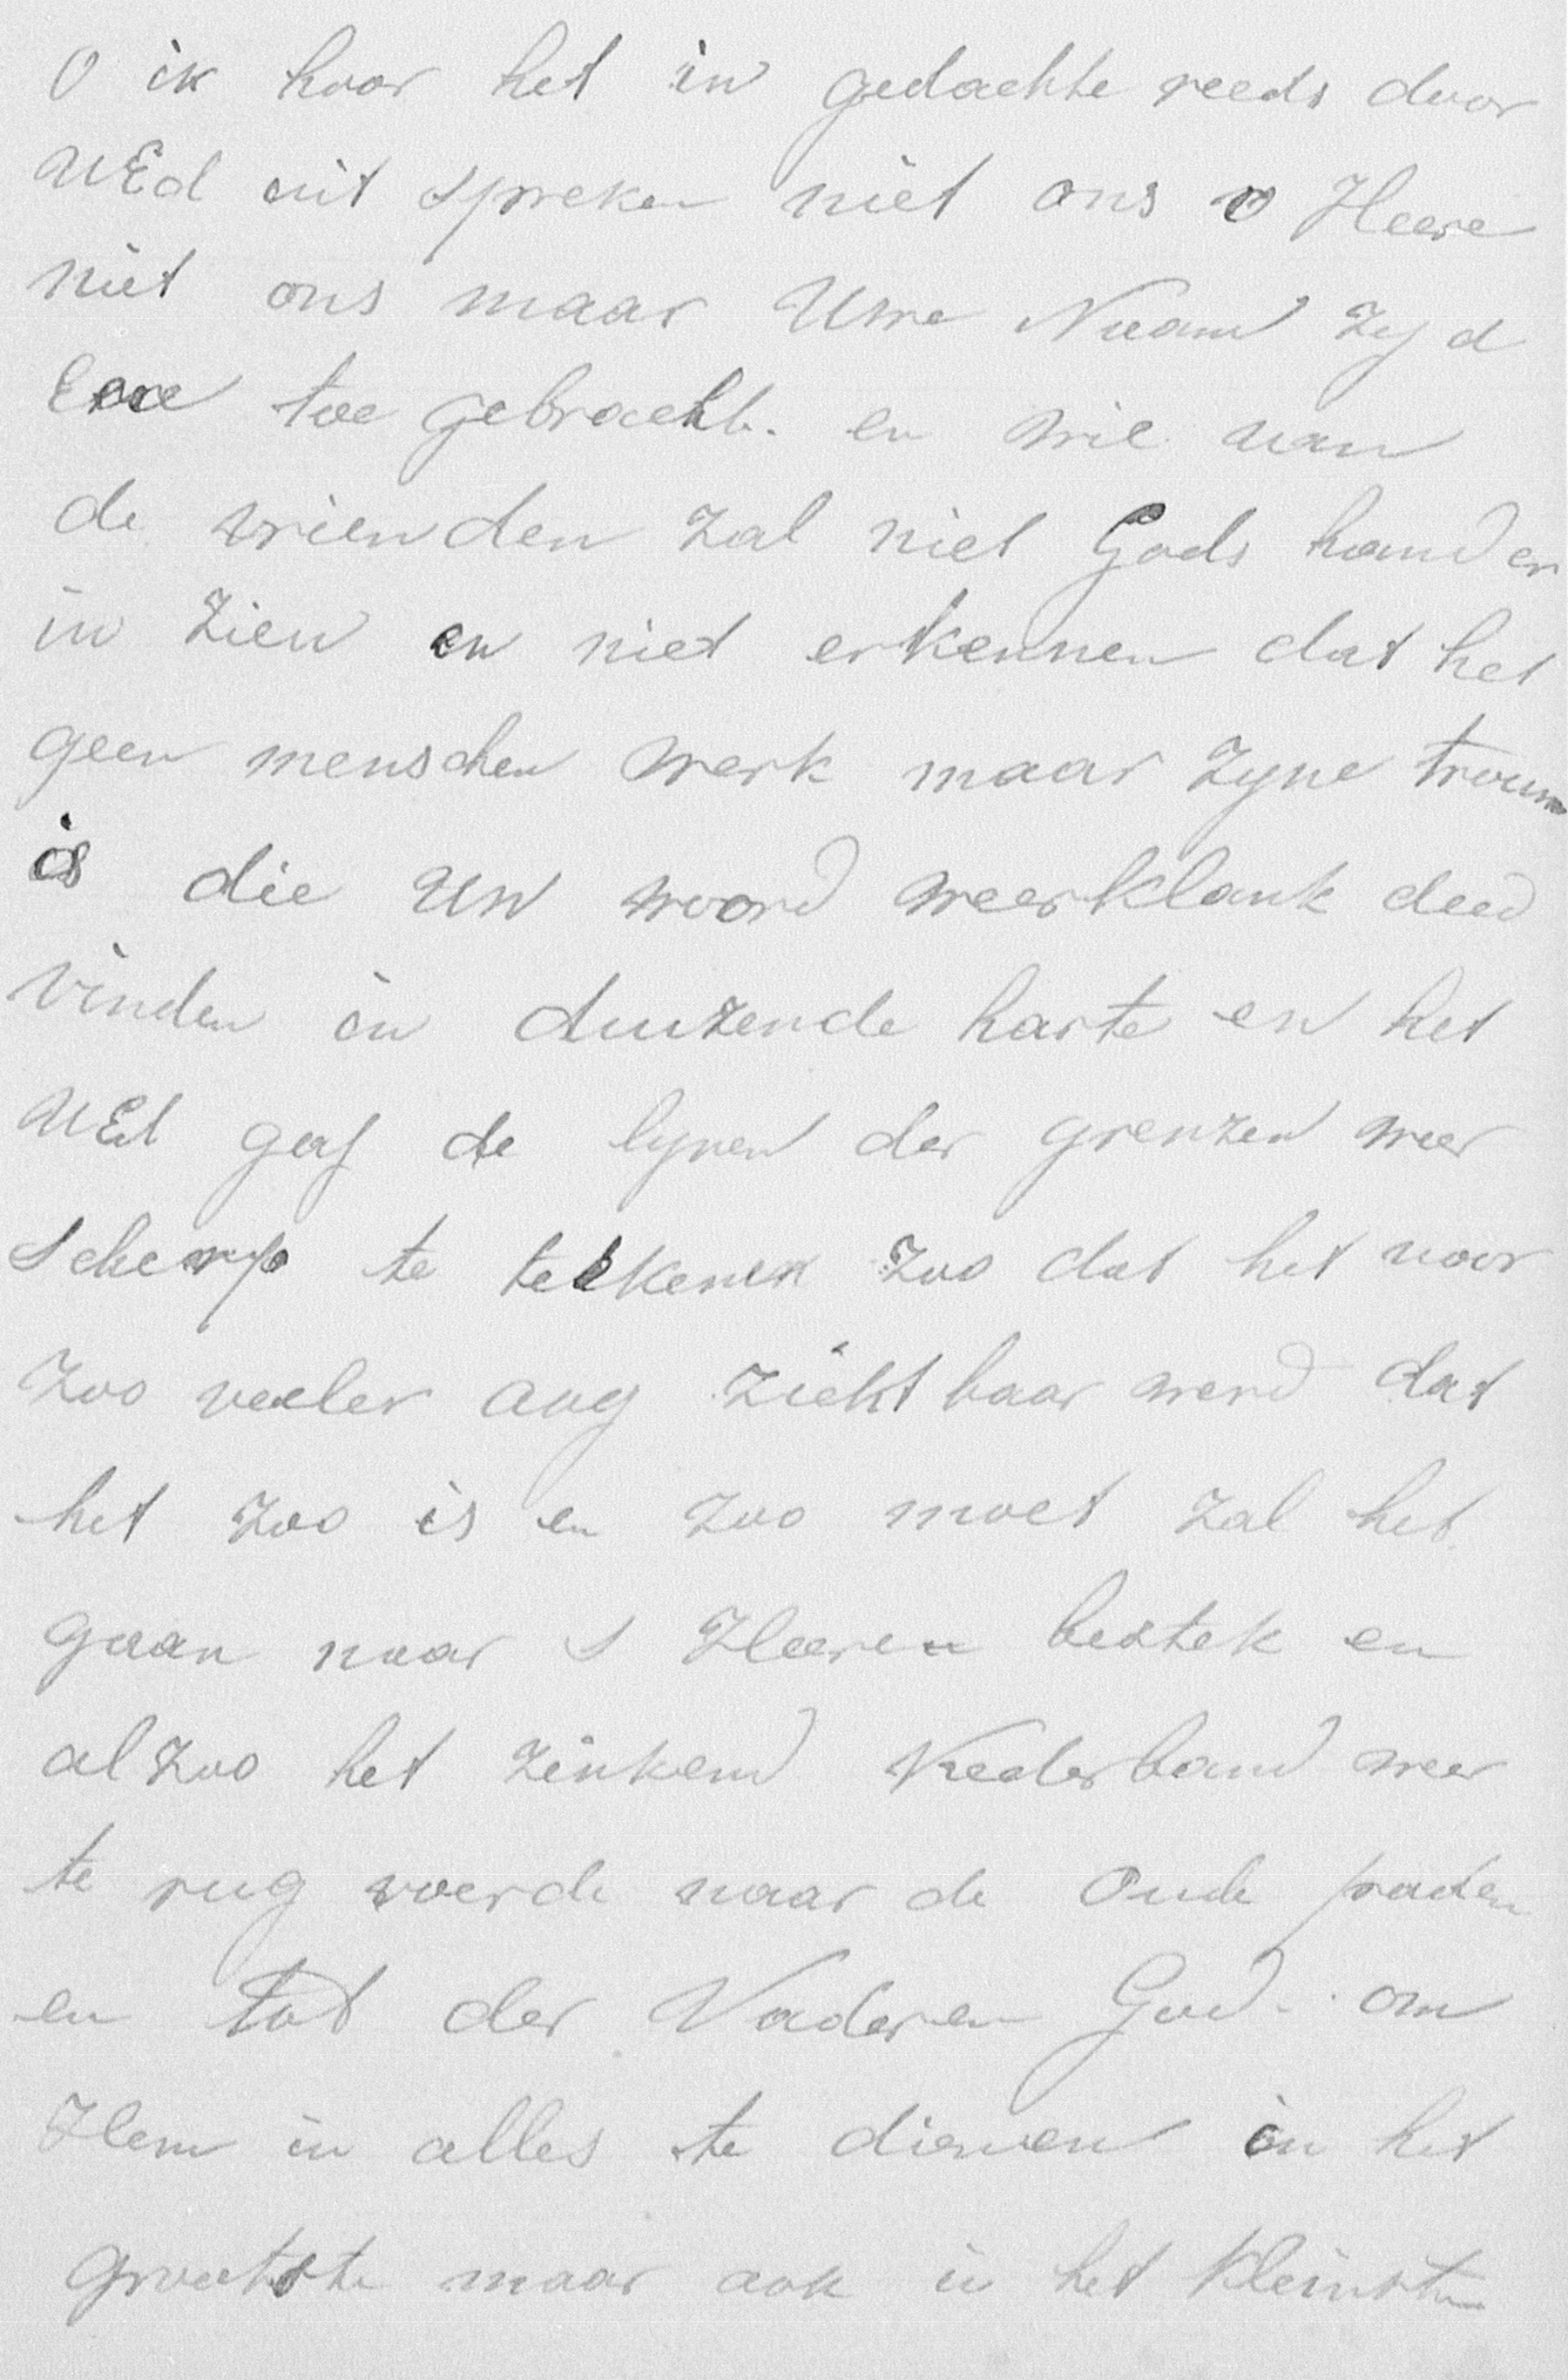 O ik hoor het in gedachte reeds door
UEd uit spreken niet ons o Heere
niet ons maar Uwe Naam zy d
Eere toe gebracht. en wie van
de vrienden zal niet Gods hand er
in zien en niet erkennen dat het
geen menschen werk maar zyne trouw
is die Uw woord weerklank deed
vinden in duizende harte en het
UEd gaf de lynen der grenzen weer
scherp te teekenen zoo dat het voor
zoo veeler oog zichtbaar werd dat
het zoo is en zoo moet zal het
gaan naar s Heeren bestek en
alzoo het zinkend Nederland weer
te rug voerde naar de Oude paden
en tot der Vaderen God om
Hem in alles te dienen in het
grootste maar ook in het kleinste